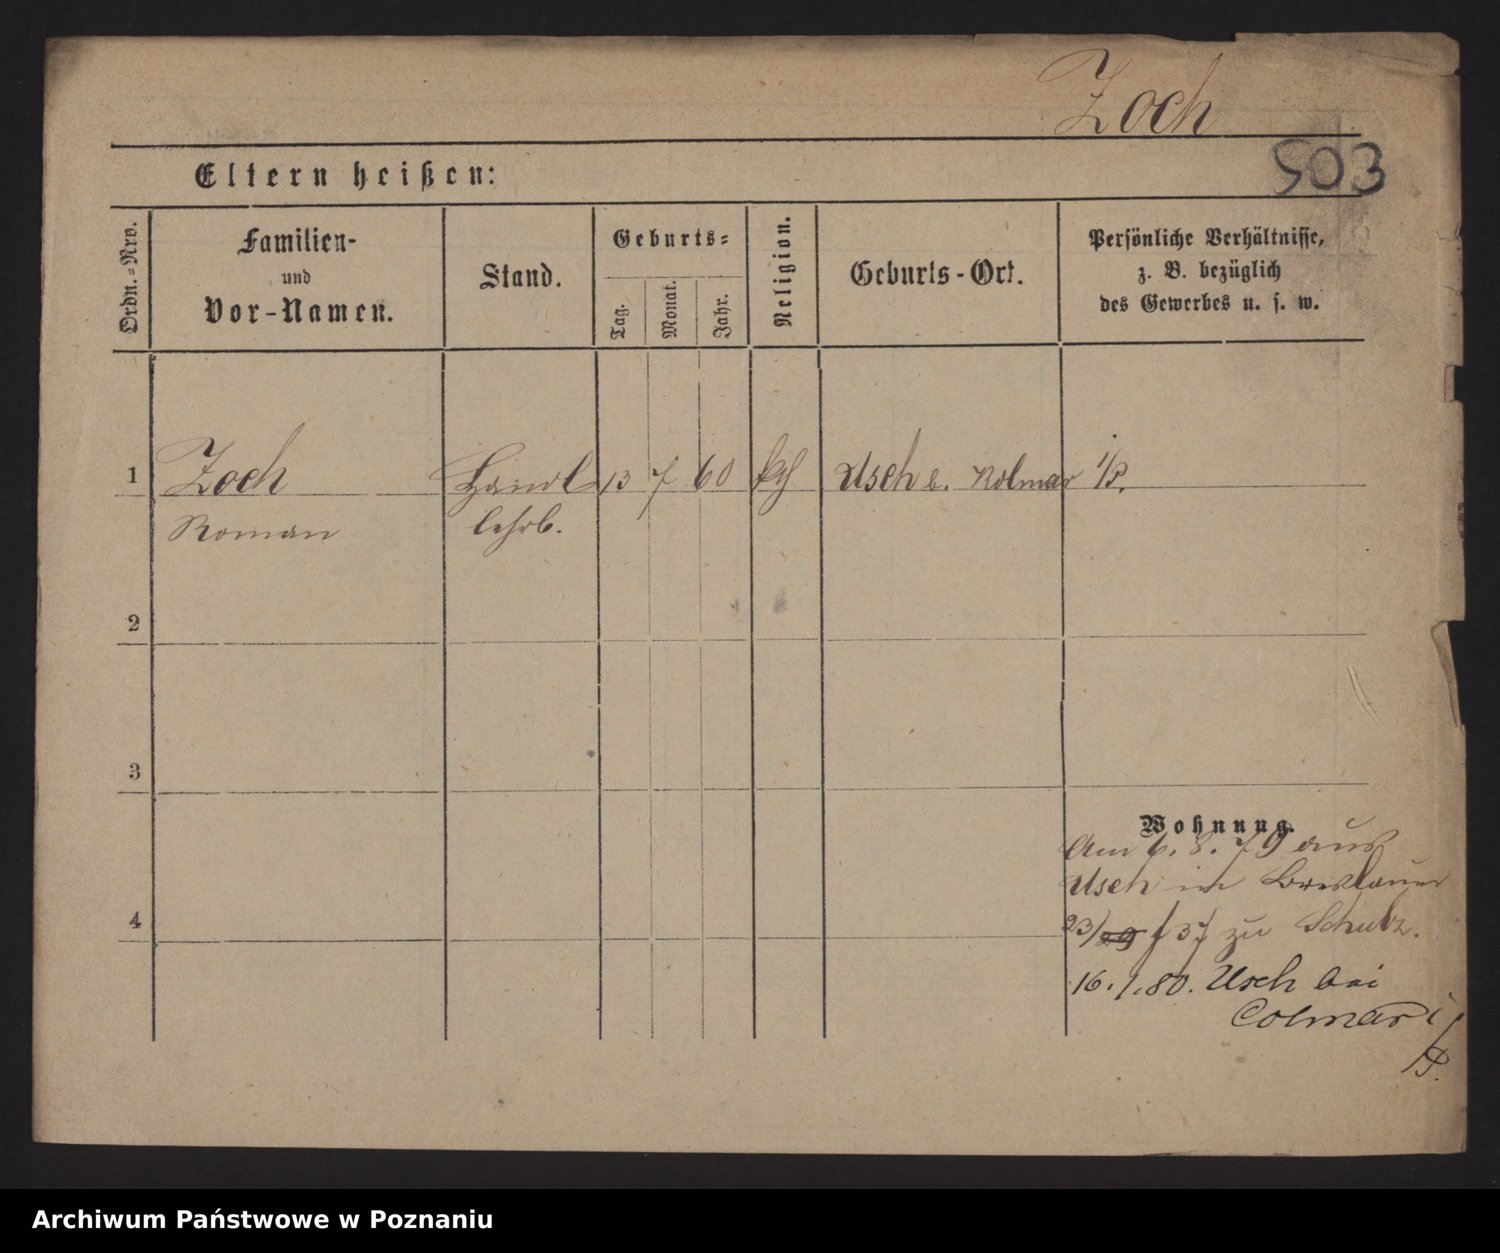 Zoch
503
Eltern heißen:
Ordn.-Nro.
Familien-
und
Vor-Namen.
Stand.
Geburts-
Tag.
Monat.
Jahr.
Religion.
Geburts-Ort.
Persönliche Verhältnisse,
z. B. bezüglich
des Gewerbes u. s. w.
1 Zoch Handl 13 7 60 kth Usch b. Kolmar i/P.
Roman lehrl.
2
3
Wohnung.
Am 6. 8. 79 aus
Usch in Breslauer
4
23/ 37 zu Schulz.
16. 1. 80. Usch bei
Colmar i/
P.
Archiwum Państwowe w Poznaniu